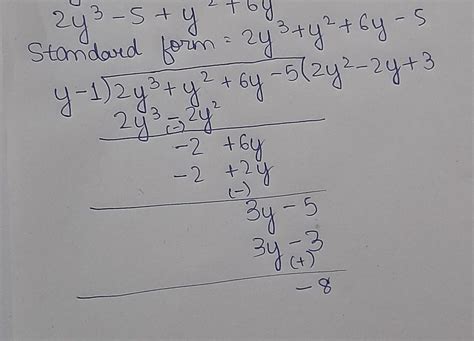 2y³ - 5 + y² + 6y
Standard form = 2y³ + y² + 6y - 5
y-1) 2y³ + y² + 6y - 5 (2y² - 2y + 3
2y³ - 2y²
(-)
-2 + 6y
-2 + 2y
(-)
3y - 5
3y - 3
(+)
- 8